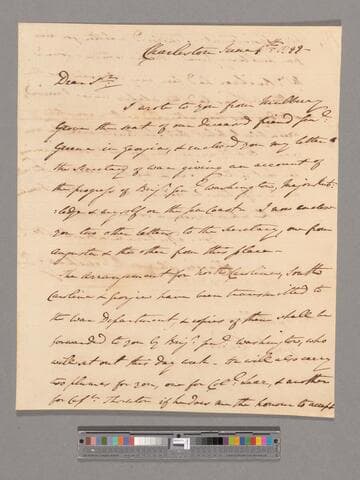 Charleston June 1st 99-
Dear Sir
I wrote to you from Mulberry
Grove the seat of our deceased friend Genl
Greene in Georgia & enclosed you my letter to
the Secretary of war giving an account of
the progress of Brigr Genl Washington, Major Rut-
ledge & myself on the sea Coast - I now enclose
you two other letters to the Secretary, one from
Augusta & the other from this place -
The arrangement for North Carolina, South
Carolina & Georgia have been transmitted to
the War department & copies of them shall be
forwarded to you by Brigr Genl Washington, who
will set out this day week - He will also carry
two plumes for you, one for Coll Lear, & another
for Captn Thornton if he does me the honour to accept